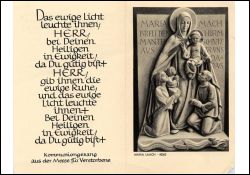 Das ewige Licht
leuchte ihnen,
HERR,
bei Deinen
Heiligen
in Ewigkeit,
da Du gütig bist+
HERR,
gib ihnen die
ewige Ruhe,
und das ewige
Licht leuchte
ihnen+
Bei Deinen
Heiligen
in Ewigkeit,
da Du gütig bist+
Kommuniongesang
aus der Messe für Verstorbene
MARIA MACH
BREIT DEN SCHIRM
MANTEL
MARIA LAACH